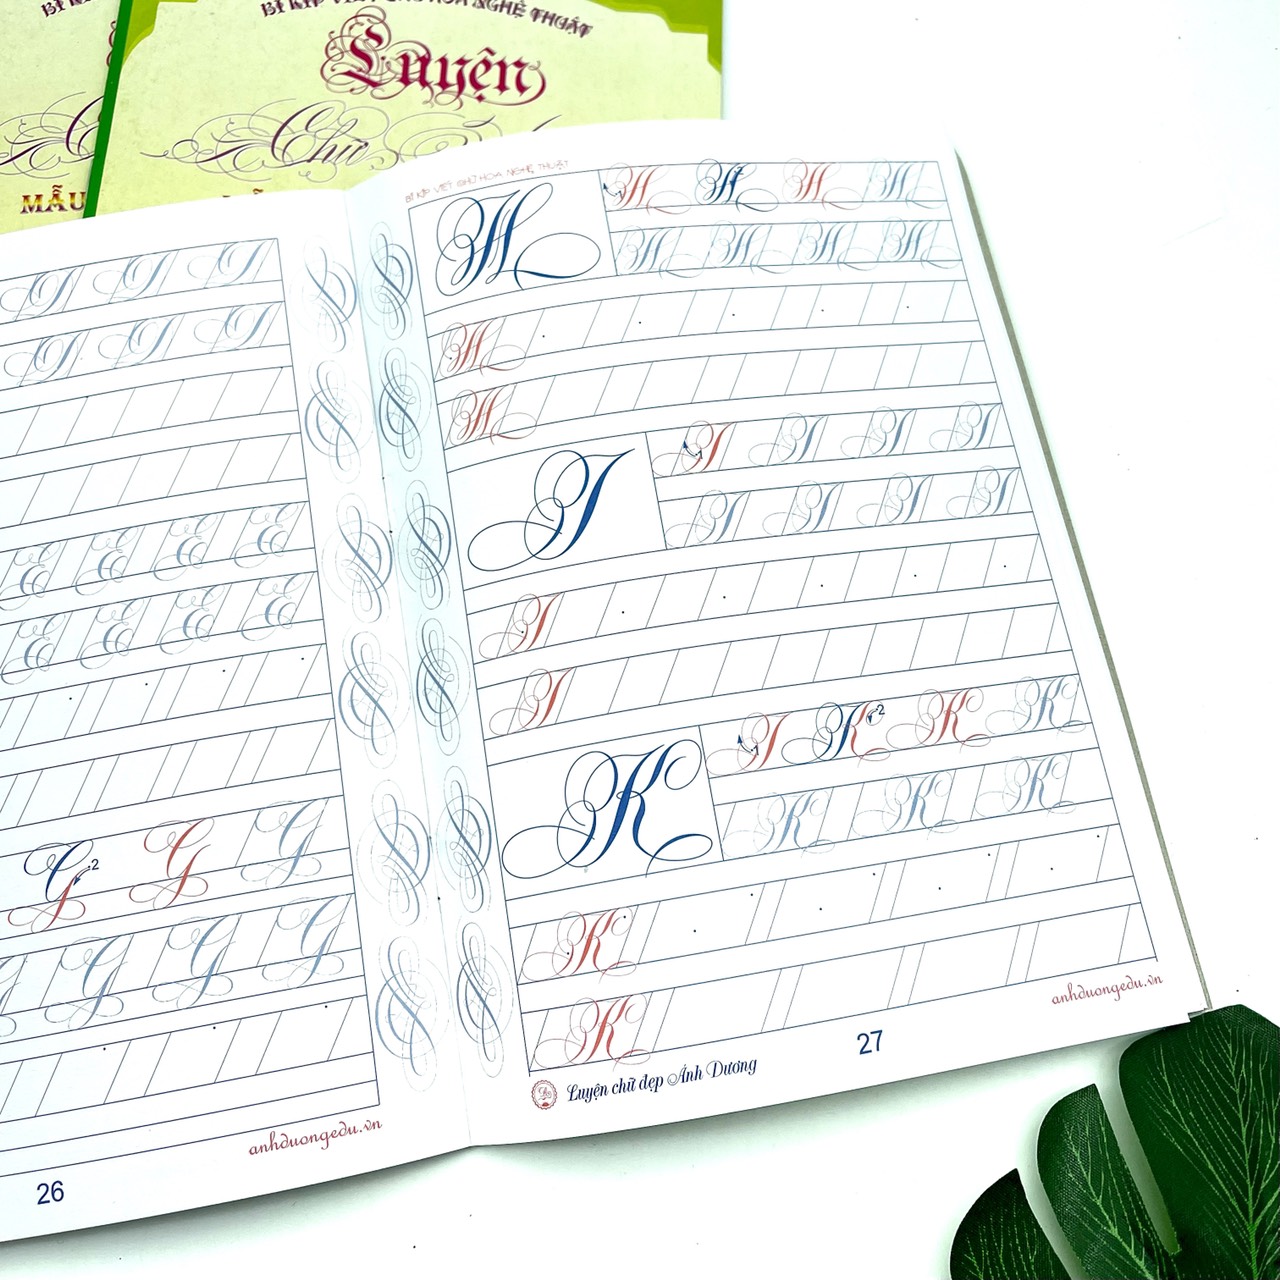 BÍ KÍP VIẾT CHỮ HOA NGHỆ THUẬT
Luyện
Chữ
MẪU
E E E E
E E E E
G 2 G G
G G G
anhduongedu.vn
26
BÍ KÍP VIẾT CHỮ HOA NGHỆ THUẬT
H 1 H 2 H H H
H H H H
H
H
I 1 I I I I
I I I I
I
I
K 1 I K 2 K K
K K K
K
K
anhduongedu.vn
Luyện chữ đẹp Ánh Dương
27